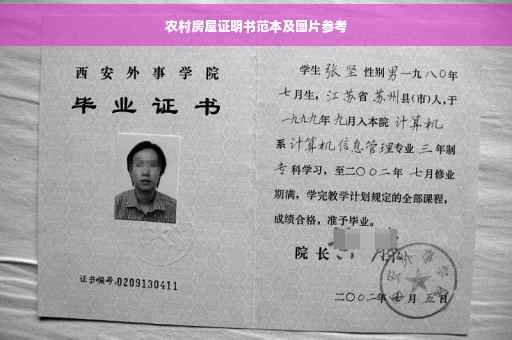 农村房屋证明书范本及图片参考
西安外事学院
毕业证书
证书编号:0209130411
学生 张坚 性别 男 一九八〇年
七月生, 江苏省 苏州县(市)人,于
一九九九年 九月入本院 计算机
系 计算机信息管理专业 三 年制
专科学习,至二〇〇二年 七月修业
期满,学完教学计划规定的全部课程,
成绩合格,准予毕业。
院长
二〇〇二年 月 五日